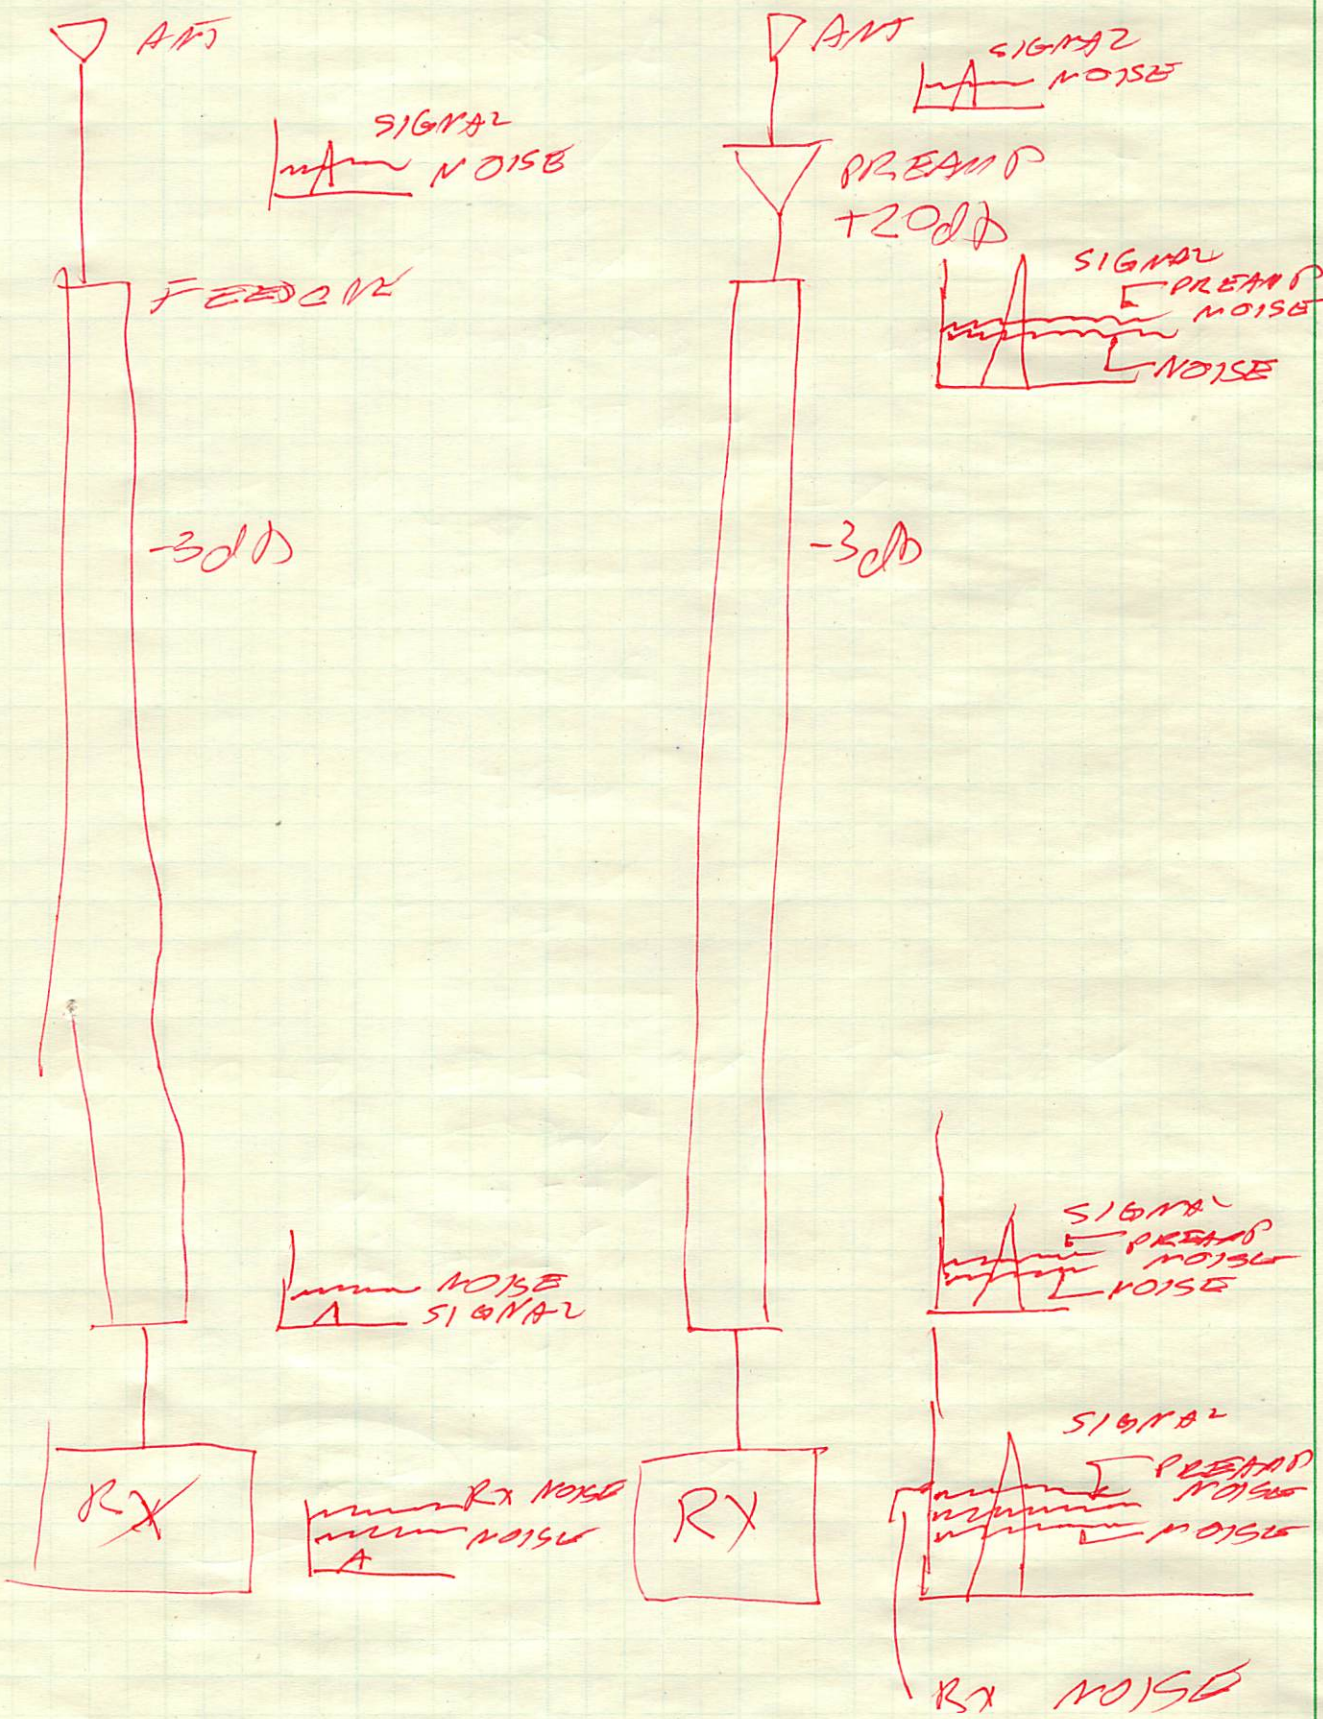 ANT
SIGNAL
NOISE
FEEDLINE
-3dB
NOISE
SIGNAL
RX
RX NOISE
NOISE
ANT
SIGNAL
NOISE
PREAMP
+20dB
SIGNAL
PREAMP
NOISE
NOISE
-3dB
SIGNAL
PREAMP
NOISE
NOISE
RX
SIGNAL
PREAMP
NOISE
NOISE
RX NOISE